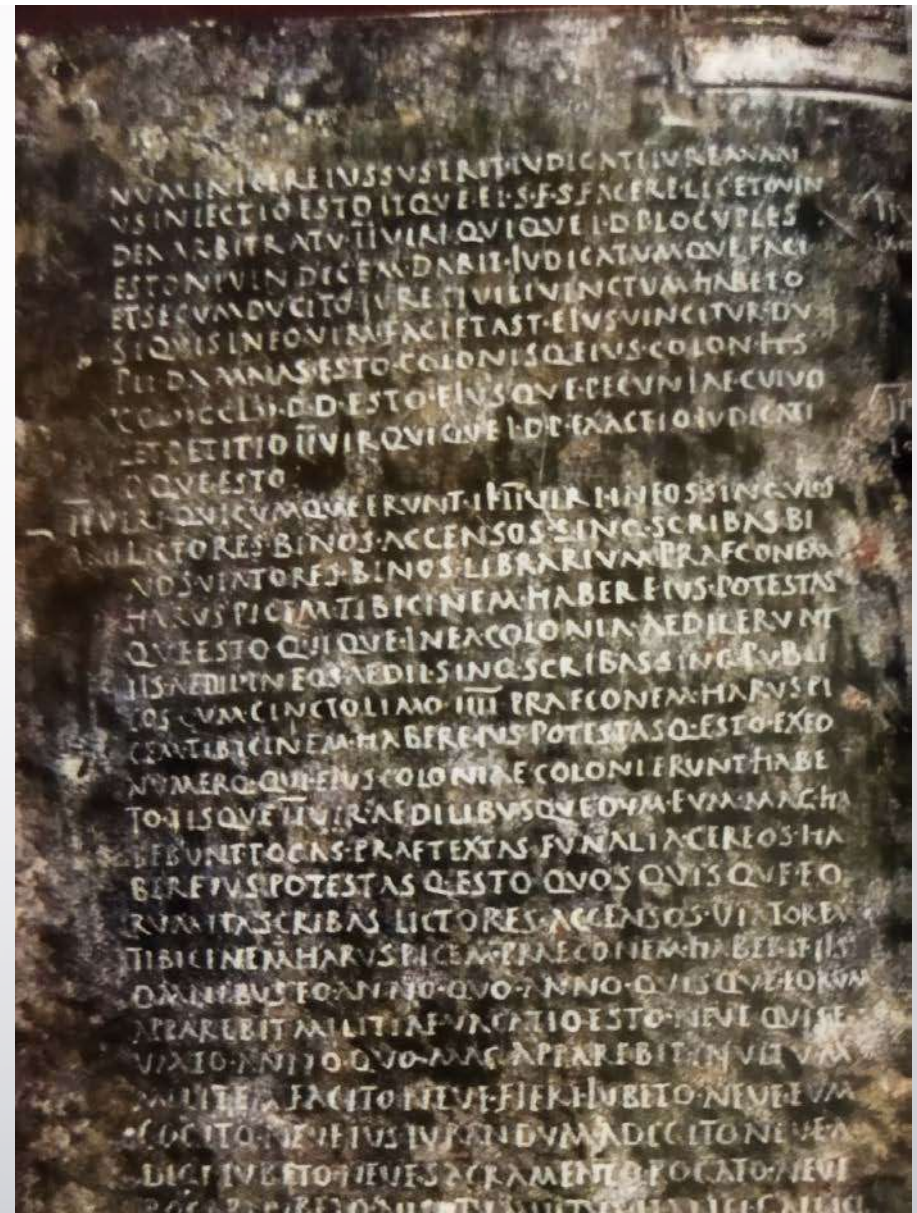 NUM INICERE IUSSUS ERIT·IUDICATI IURE MAN
US INIECTIO ESTO ITQUE EI·S·F·S FACERE LICETO VIN
DEX ARBITRATU I̅I̅VIRI QUIQUE I·D P LOCUPLES
ESTO NI VINDICEM·DABIT·IUDICATUMQUE FACI
ET SECUM DUCITO·IURE CIVILI VINCTUM HABETO
SI QUIS IN EO VIM FACIET AST·EIUS VINCITUR·DU
PLI DAMNAS·ESTO·COLONISQ·EIUS·COLON·HS
D·D·ESTO·EIUSQUE·PECUNIAE·CUI VO
LET PETITIO I̅I̅VIR QUIQUE I·D·P·EXACTIO IUDICATI
OQUE ESTO
I̅I̅VIRI QUICUMQUE ERUNT·I̅I̅VIRI IN EOS SINGULOS
LICTORES BINOS·ACCENSOS·SING·SCRIBAS BI
NOS VIATORES·BINOS·LIBRARIUM PRAECONEM
HARUSPICEM·TIBICINEM·HABERE IUS·POTESTAS
QUE ESTO QUIQUE·IN EA COLONIA·AEDIL ERUNT
IIS AEDIL IN EOS AEDIL·SING·SCRIBAS SING·PUBLI
COS CUM CINCTO LIMO I̅I̅I̅I̅ PRAECONEM·HARUSPI
CEM·TIBICINEM·HABERE IUS POTESTASQ·ESTO·EX EO
NUMERO·QUI·EIUS COLONIAE COLONI ERUNT HABE
TO·IISQUE I̅I̅VIR AEDILIBUSQUE DUM·EUM·MAG·HA
BEBUNT TOGAS·PRAETEXTAS FUNALIA CEREOS·HA
BERE IUS POTESTASQ·ESTO QUOS QUISQUE EO
RUM ITA SCRIBAS LICTORES·ACCENSOS·VIATOREM
TIBICINEM HARUSPICEM·PRAECONEM·HABEBIT IIS
OMNIBUS EO ANNO·QUO·ANNO·QUISQUE EORUM
APPAREBIT MILITIAE·VACATIO ESTO·NEVE QUIS E
UM EO·ANNO QUO·MAG·APPAREBIT INVITUM
MILITEM FACITO NEVE·FIERI IUBETO·NEVE EUM
COGITO·NEVE IUS IURANDUM·ADIGITO NEVE A
DIGI IUBETO·NEVE SACRAMENTO ROGATO·NEVE